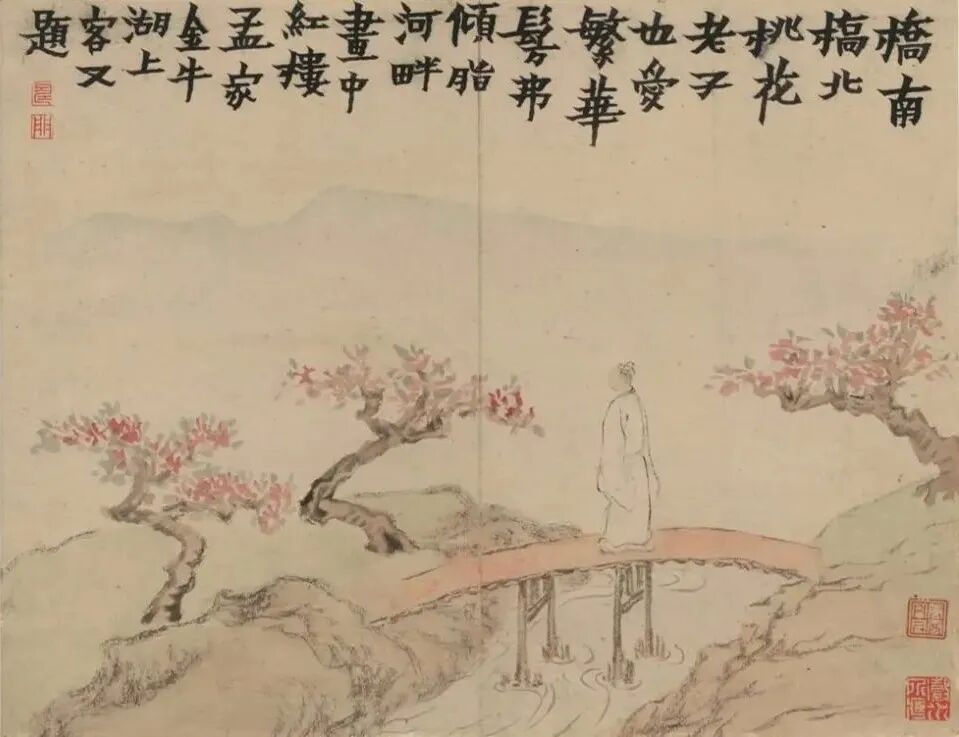 橋南
槗北
桃花
老子
也愛
繁華
髣弗
傾脂
河畔
畫中
紅樓
孟家
金牛
湖上
客又
題